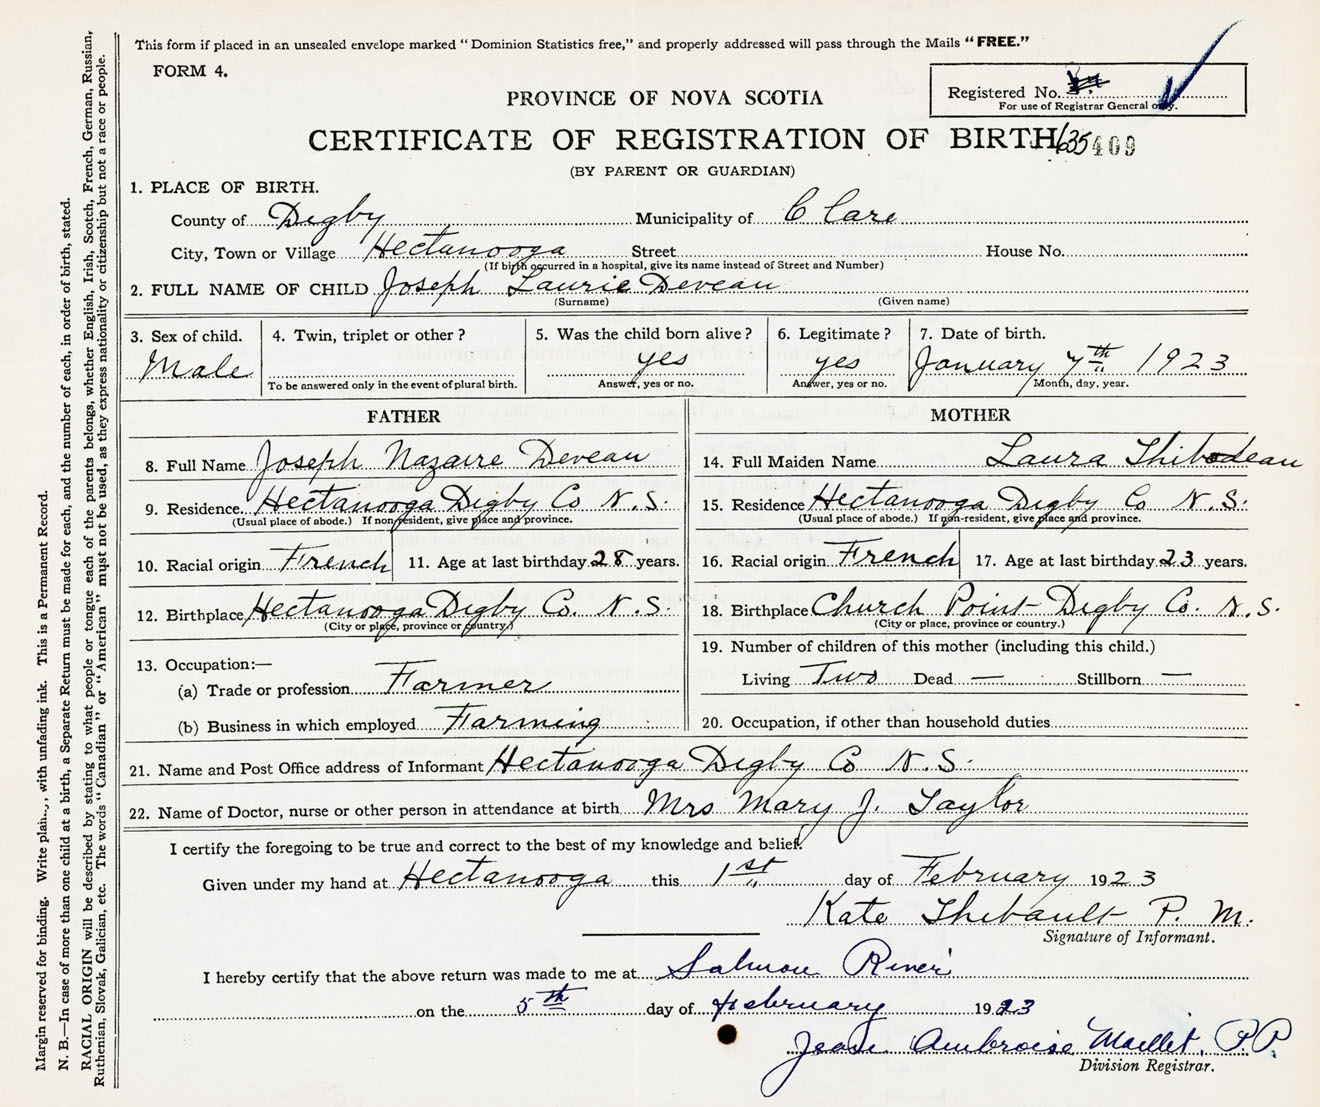 This form if placed in an unsealed envelope marked "Dominion Statistics free," and properly addressed will pass through the Mails "FREE."
FORM 4.
Registered No.
For use of Registrar General only.
PROVINCE OF NOVA SCOTIA
CERTIFICATE OF REGISTRATION OF BIRTH 635 409
(BY PARENT OR GUARDIAN)
1. PLACE OF BIRTH.
County of Digby Municipality of Clare
City, Town or Village Hectanooga Street House No.
(If birth occurred in a hospital, give its name instead of Street and Number)
2. FULL NAME OF CHILD Joseph Laurie Deveau
(Surname) (Given name)
3. Sex of child. 4. Twin, triplet or other? 5. Was the child born alive? 6. Legitimate? 7. Date of birth.
Male yes yes January 7th 1923
To be answered only in the event of plural birth. Answer, yes or no. Answer, yes or no. Month, day, year.
FATHER MOTHER
8. Full Name Joseph Nazaire Deveau 14. Full Maiden Name Laura Thibodeau
9. Residence Hectanooga Digby Co N.S. 15. Residence Hectanooga Digby Co N.S.
(Usual place of abode.) If non-resident, give place and province. (Usual place of abode.) If non-resident, give place and province.
10. Racial origin French 11. Age at last birthday 28 years. 16. Racial origin French 17. Age at last birthday 23 years.
12. Birthplace Hectanooga Digby Co. N.S. 18. Birthplace Church Point Digby Co. N.S.
(City or place, province or country.) (City or place, province or country.)
13. Occupation:— 19. Number of children of this mother (including this child.)
(a) Trade or profession Farmer Living Two Dead — Stillborn —
(b) Business in which employed Farming 20. Occupation, if other than household duties
21. Name and Post Office address of Informant Hectanooga Digby Co N.S.
22. Name of Doctor, nurse or other person in attendance at birth Mrs Mary J. Taylor
I certify the foregoing to be true and correct to the best of my knowledge and belief.
Given under my hand at Hectanooga this 1st day of February 1923
Kate Thibault P. M.
Signature of Informant.
I hereby certify that the above return was made to me at Salmon River
on the 5th day of February 1923
Jean Ambroise Maillet, P.P.
Division Registrar.
Margin reserved for binding. Write plainly, with unfading ink. This is a Permanent Record.
N. B.—In case of more than one child at a birth, a Separate Return must be made for each, and the number of each, in order of birth, stated.
RACIAL ORIGIN will be described by stating to what people or tongue each of the parents belongs, whether English, Irish, Scotch, French, German, Russian,
Ruthenian, Slovak, Galician, etc. The words "Canadian" or "American" must not be used, as they express nationality or citizenship but not a race or people.